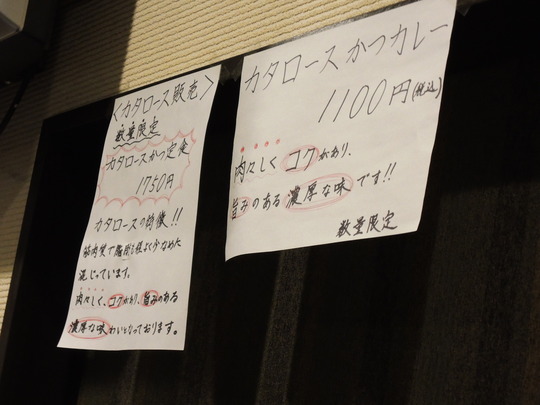 ＜カタロース販売＞
数量限定
カタロースかつ定食
1750円
カタロースの特徴!!
筋肉質で脂身も程よく少なめた
混じっています。
肉々しく、コクがあり、旨みのある
濃厚な味わいとなっております。
カタロースかつカレー
1100円(税込)
肉々しくコクがあり、
旨みのある濃厚な味です!!
数量限定